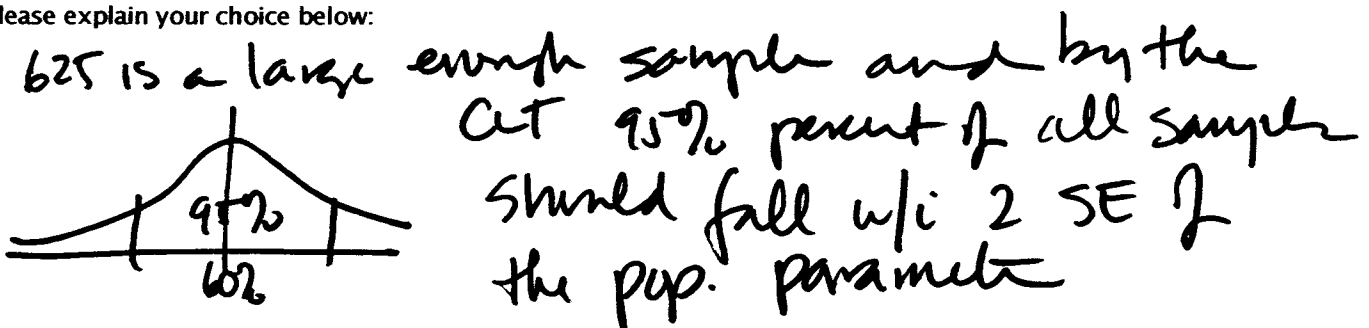 lease explain your choice below:
625 is a large enough sample and by the
CLT 95% percent of all samples
should fall w/i 2 SE of
the pop. parameter
95%
60%